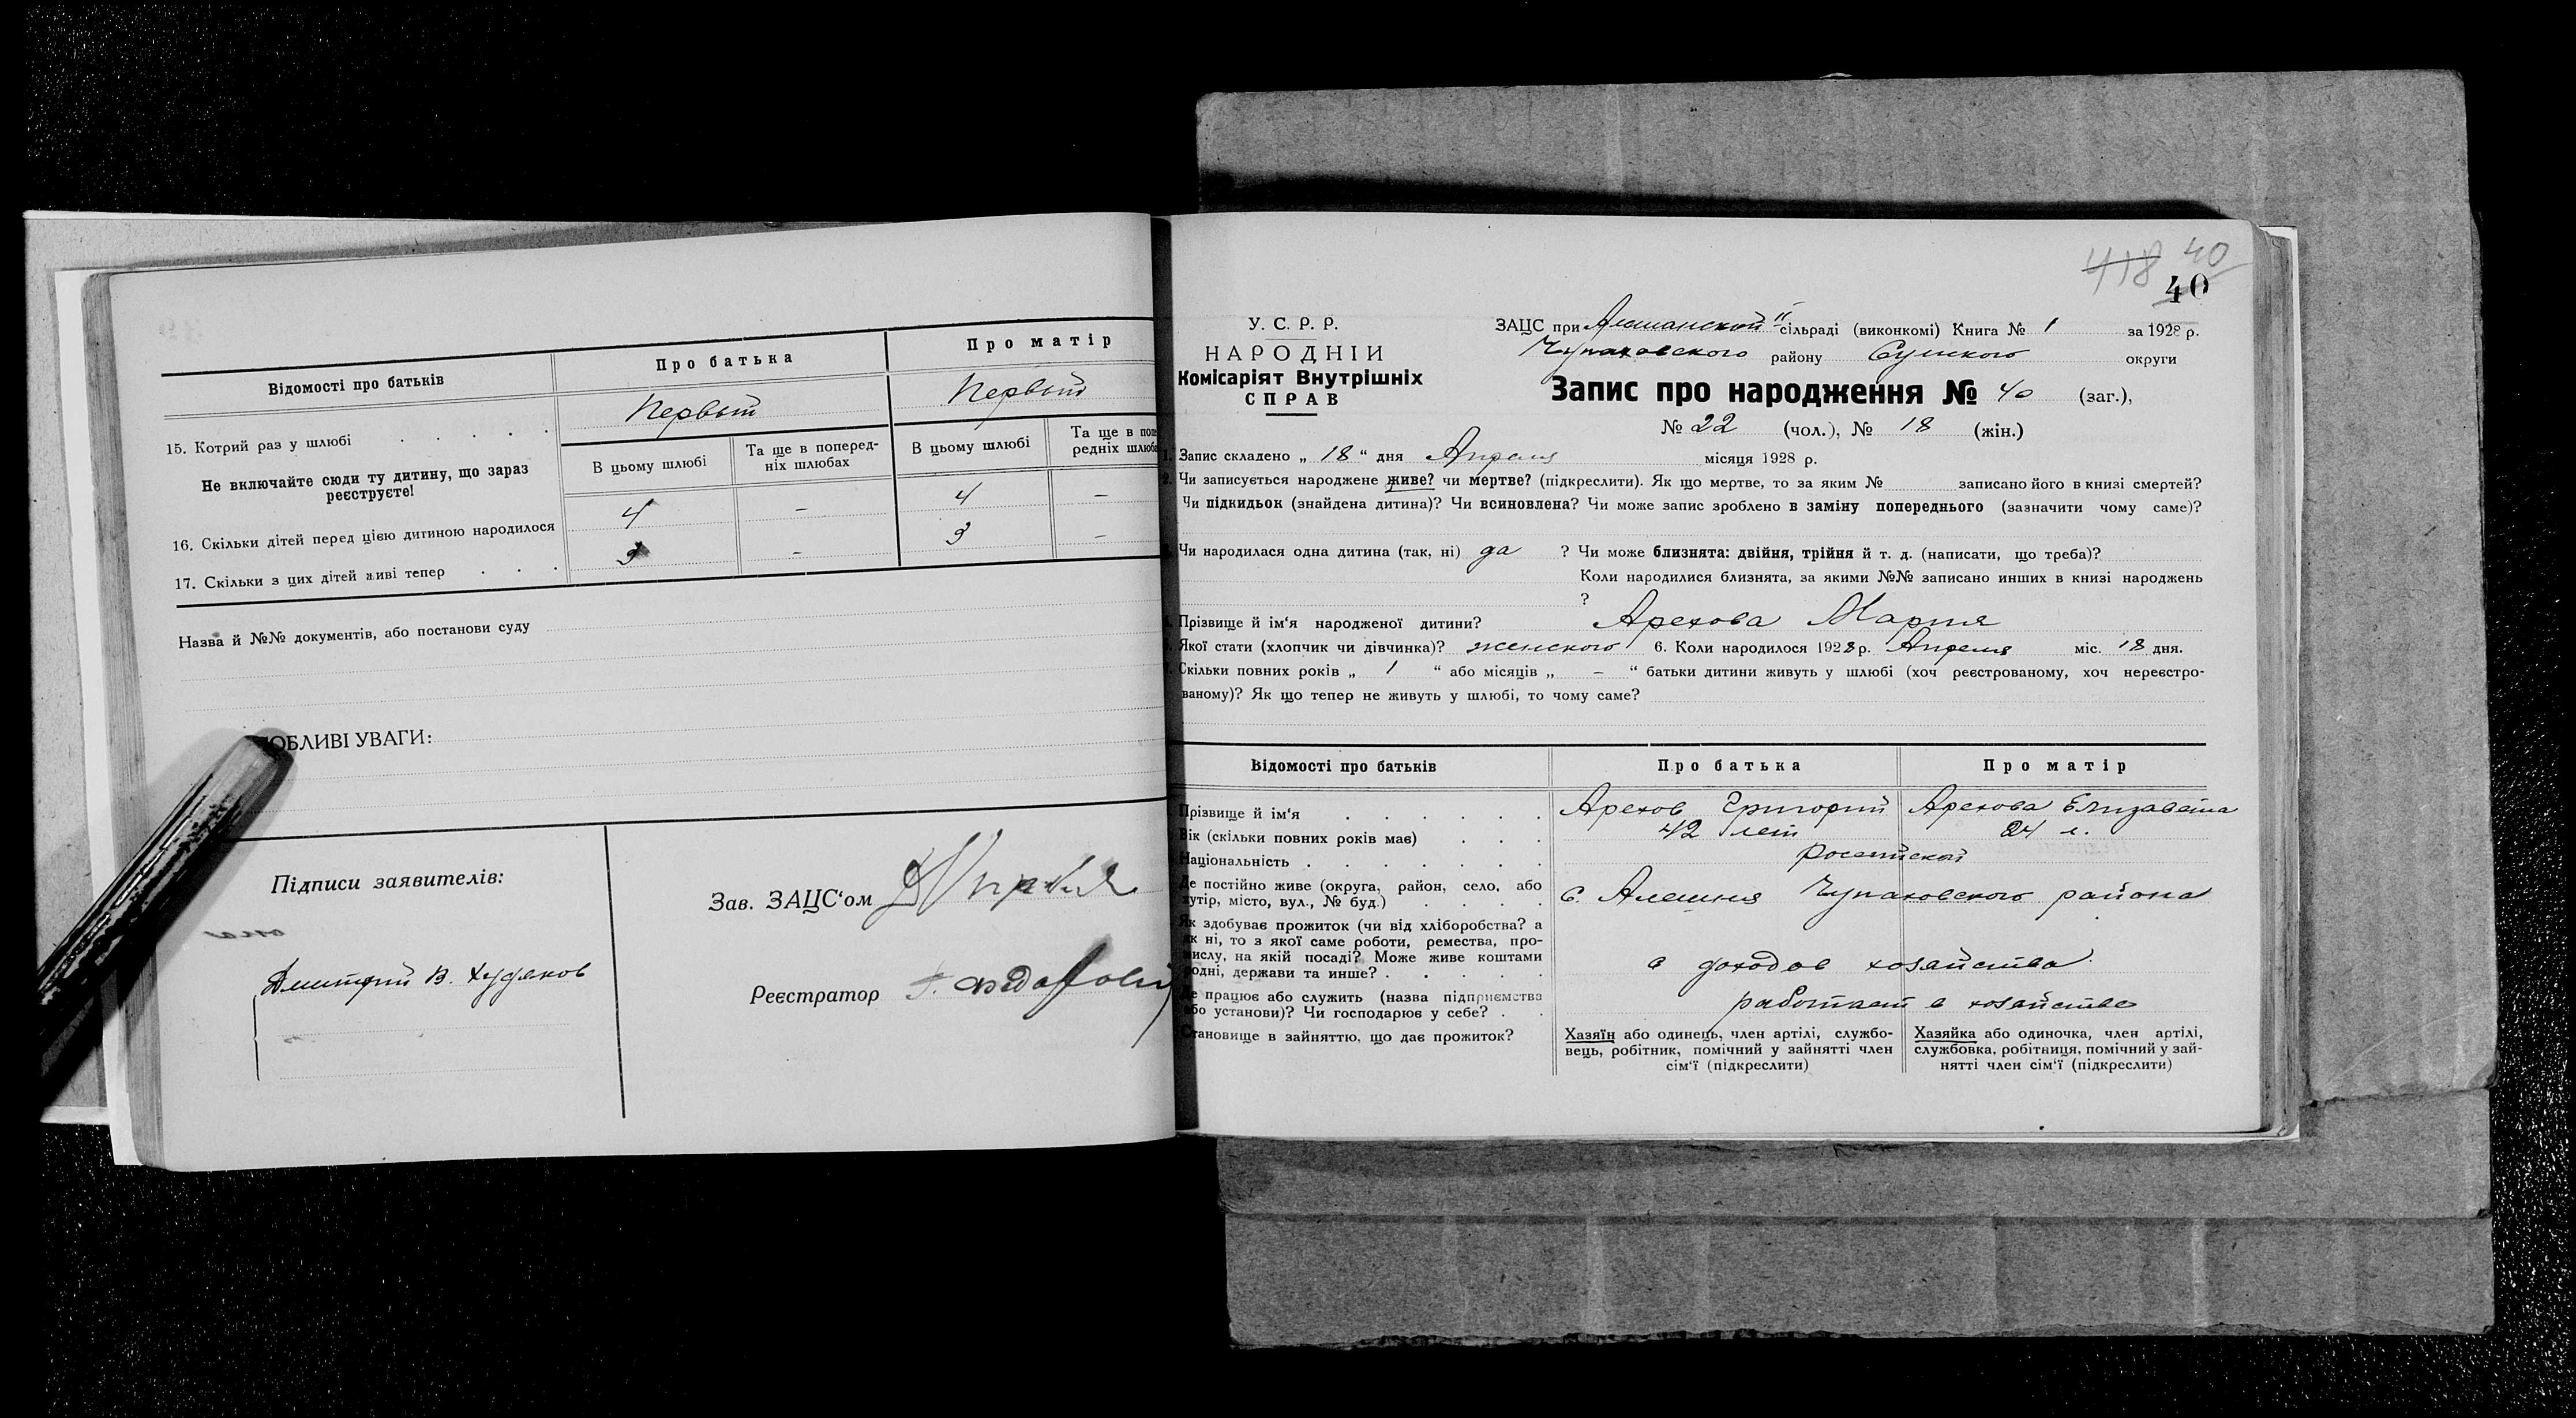 Відомості про батьків
Про батька
Про матір
15. Котрий раз у шлюбі
Первый
Первый
Не включайте сюди ту дитину, що зараз реєструєте!
В цьому шлюбі
Та ще в поперед-
ніх шлюбах
В цьому шлюбі
Та ще в
редніх
16. Скільки дітей перед цією дитиною народилося
4 - 4 -
17. Скільки з цих дітей живі тепер
3 - 3 -
Назва й №№ документів, або постанови суду
ОБЛИВІ УВАГИ:
Підписи заявителів:
Дмитрий В. Худяков
Зав. ЗАЦС‘ом
Реєстратор
418 40
40
У. С. Р. Р.
НАРОДНІЙ
Комісаріят Внутрішніх
СПРАВ
ЗАЦС при Алешанской II сільраді (виконкомі) Книга № 1 за 1928 р.
Чупаховского району Сумского округи
Запис про народження № 40 (заг.),
№ 22 (чол.), № 18 (жін.)
1. Запис складено „ 18 “ дня Апреля місяця 1928 р.
2. Чи записується народжене живе? чи мертве? (підкреслити). Як що мертве, то за яким № записано його в книзі смертей?
Чи підкидьок (знайдена дитина)? Чи всиновлена? Чи може запис зроблено в заміну попереднього (зазначити чому саме)?
Чи народилася одна дитина (так, ні) да ? Чи може близнята: двійня, трійня й т. д. (написати, що треба)?
Коли народилися близнята, за якими №№ записано инших в книзі народжень
?
Прізвище й ім‘я народженої дитини? Арехова Мария
Якої стати (хлопчик чи дівчинка)? женского 6. Коли народилося 1928 р. Апреля міс. 18 дня.
Скільки повних років „ 1 “ або місяців „ - “ батьки дитини живуть у шлюбі (хоч реєстрованому, хоч нереєстро-
ваному)? Як що тепер не живуть у шлюбі, то чому саме?
Відомості про батьків
Про батька
Про матір
Прізвище й ім‘я
Арехов Григорий
Арехова Елизавета
Вік (скільки повних років має)
42 лет
24 л.
Національність
российской
Де постійно живе (округа, район, село, або
хутір, місто, вул., № буд.)
с. Алешня Чупаховского района
Як здобуває прожиток (чи від хліборобства? а
як ні, то з якої саме роботи, ремества, про-
мислу, на якій посаді? Може живе коштами
родні, держави та инше?
с доходов хозяйства
Де працює або служить (назва підприємства
або установи)? Чи господарює у себе?
работает в хозяйстве
Становище в зайняттю, що дає прожиток?
Хазяїн або одинець, член артілі, службо-
вець, робітник, помічний у зайнятті член
сім‘ї (підкреслити)
Хазяйка або одиночка, член артілі,
службовка, робітниця, помічний у зай-
нятті член сім‘ї (підкреслити)